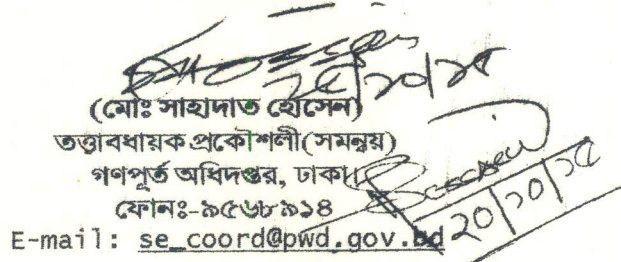 ২৫/১০/১৫
(মোঃ সাহাদাত হোসেন)
তত্ত্বাবধায়ক প্রকৌশলী(সমন্বয়)
গণপূর্ত অধিদপ্তর, ঢাকা।
ফোনঃ-৯৫৬৮৯১৪
E-mail: se_coord@pwd.gov.bd